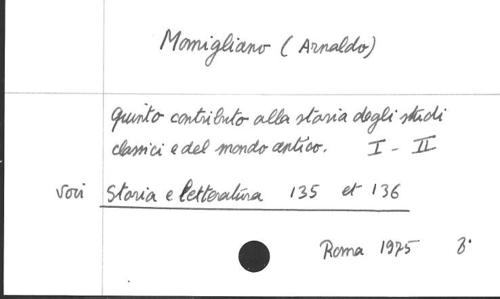 Momigliano (Arnaldo)
Quinto contributo alla storia degli studi
classici e del mondo antico. I - II
voir Storia e letteratura 135 et 136
Roma 1975 8°